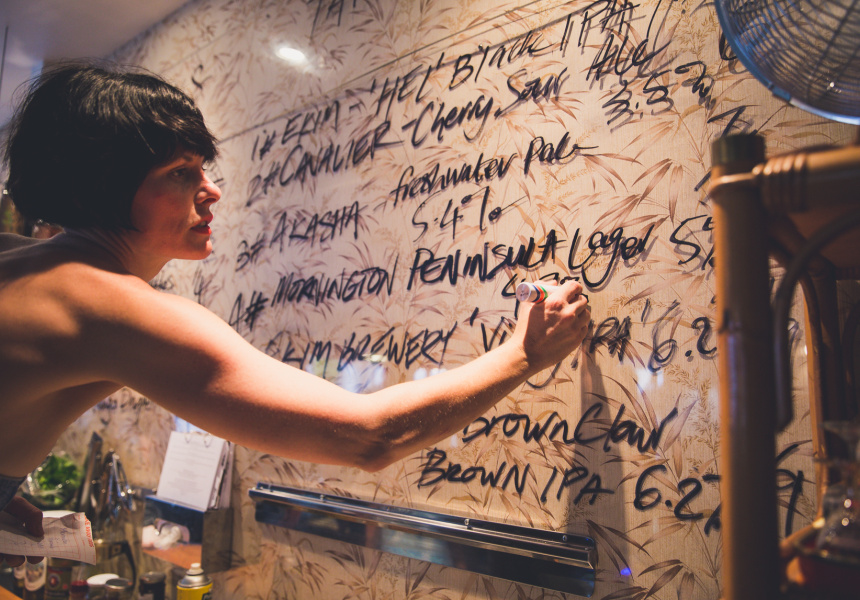 1# EKIM - 'HEL' Black IPA
2# CAVALIER - Cherry Sour Ale
3.5%
3# AKASHA freshwater Pale
5.4%
4# MORNINGTON PENINSULA Lager 5%
EKIM BREWERY 6.2
Brown Claw
BROWN IPA 6.2%